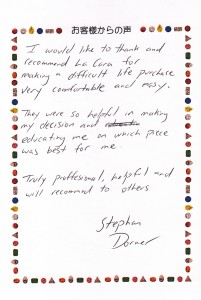 お客様からの声
I would like to thank and
recommend La Cara for
making a difficult life purchase
very comfortable and easy.
They were so helpful in making
my decision and
educating me on which piece
was best for me.
Truly proffesional, helpful and
will recommend to others
Stephan
Dorner